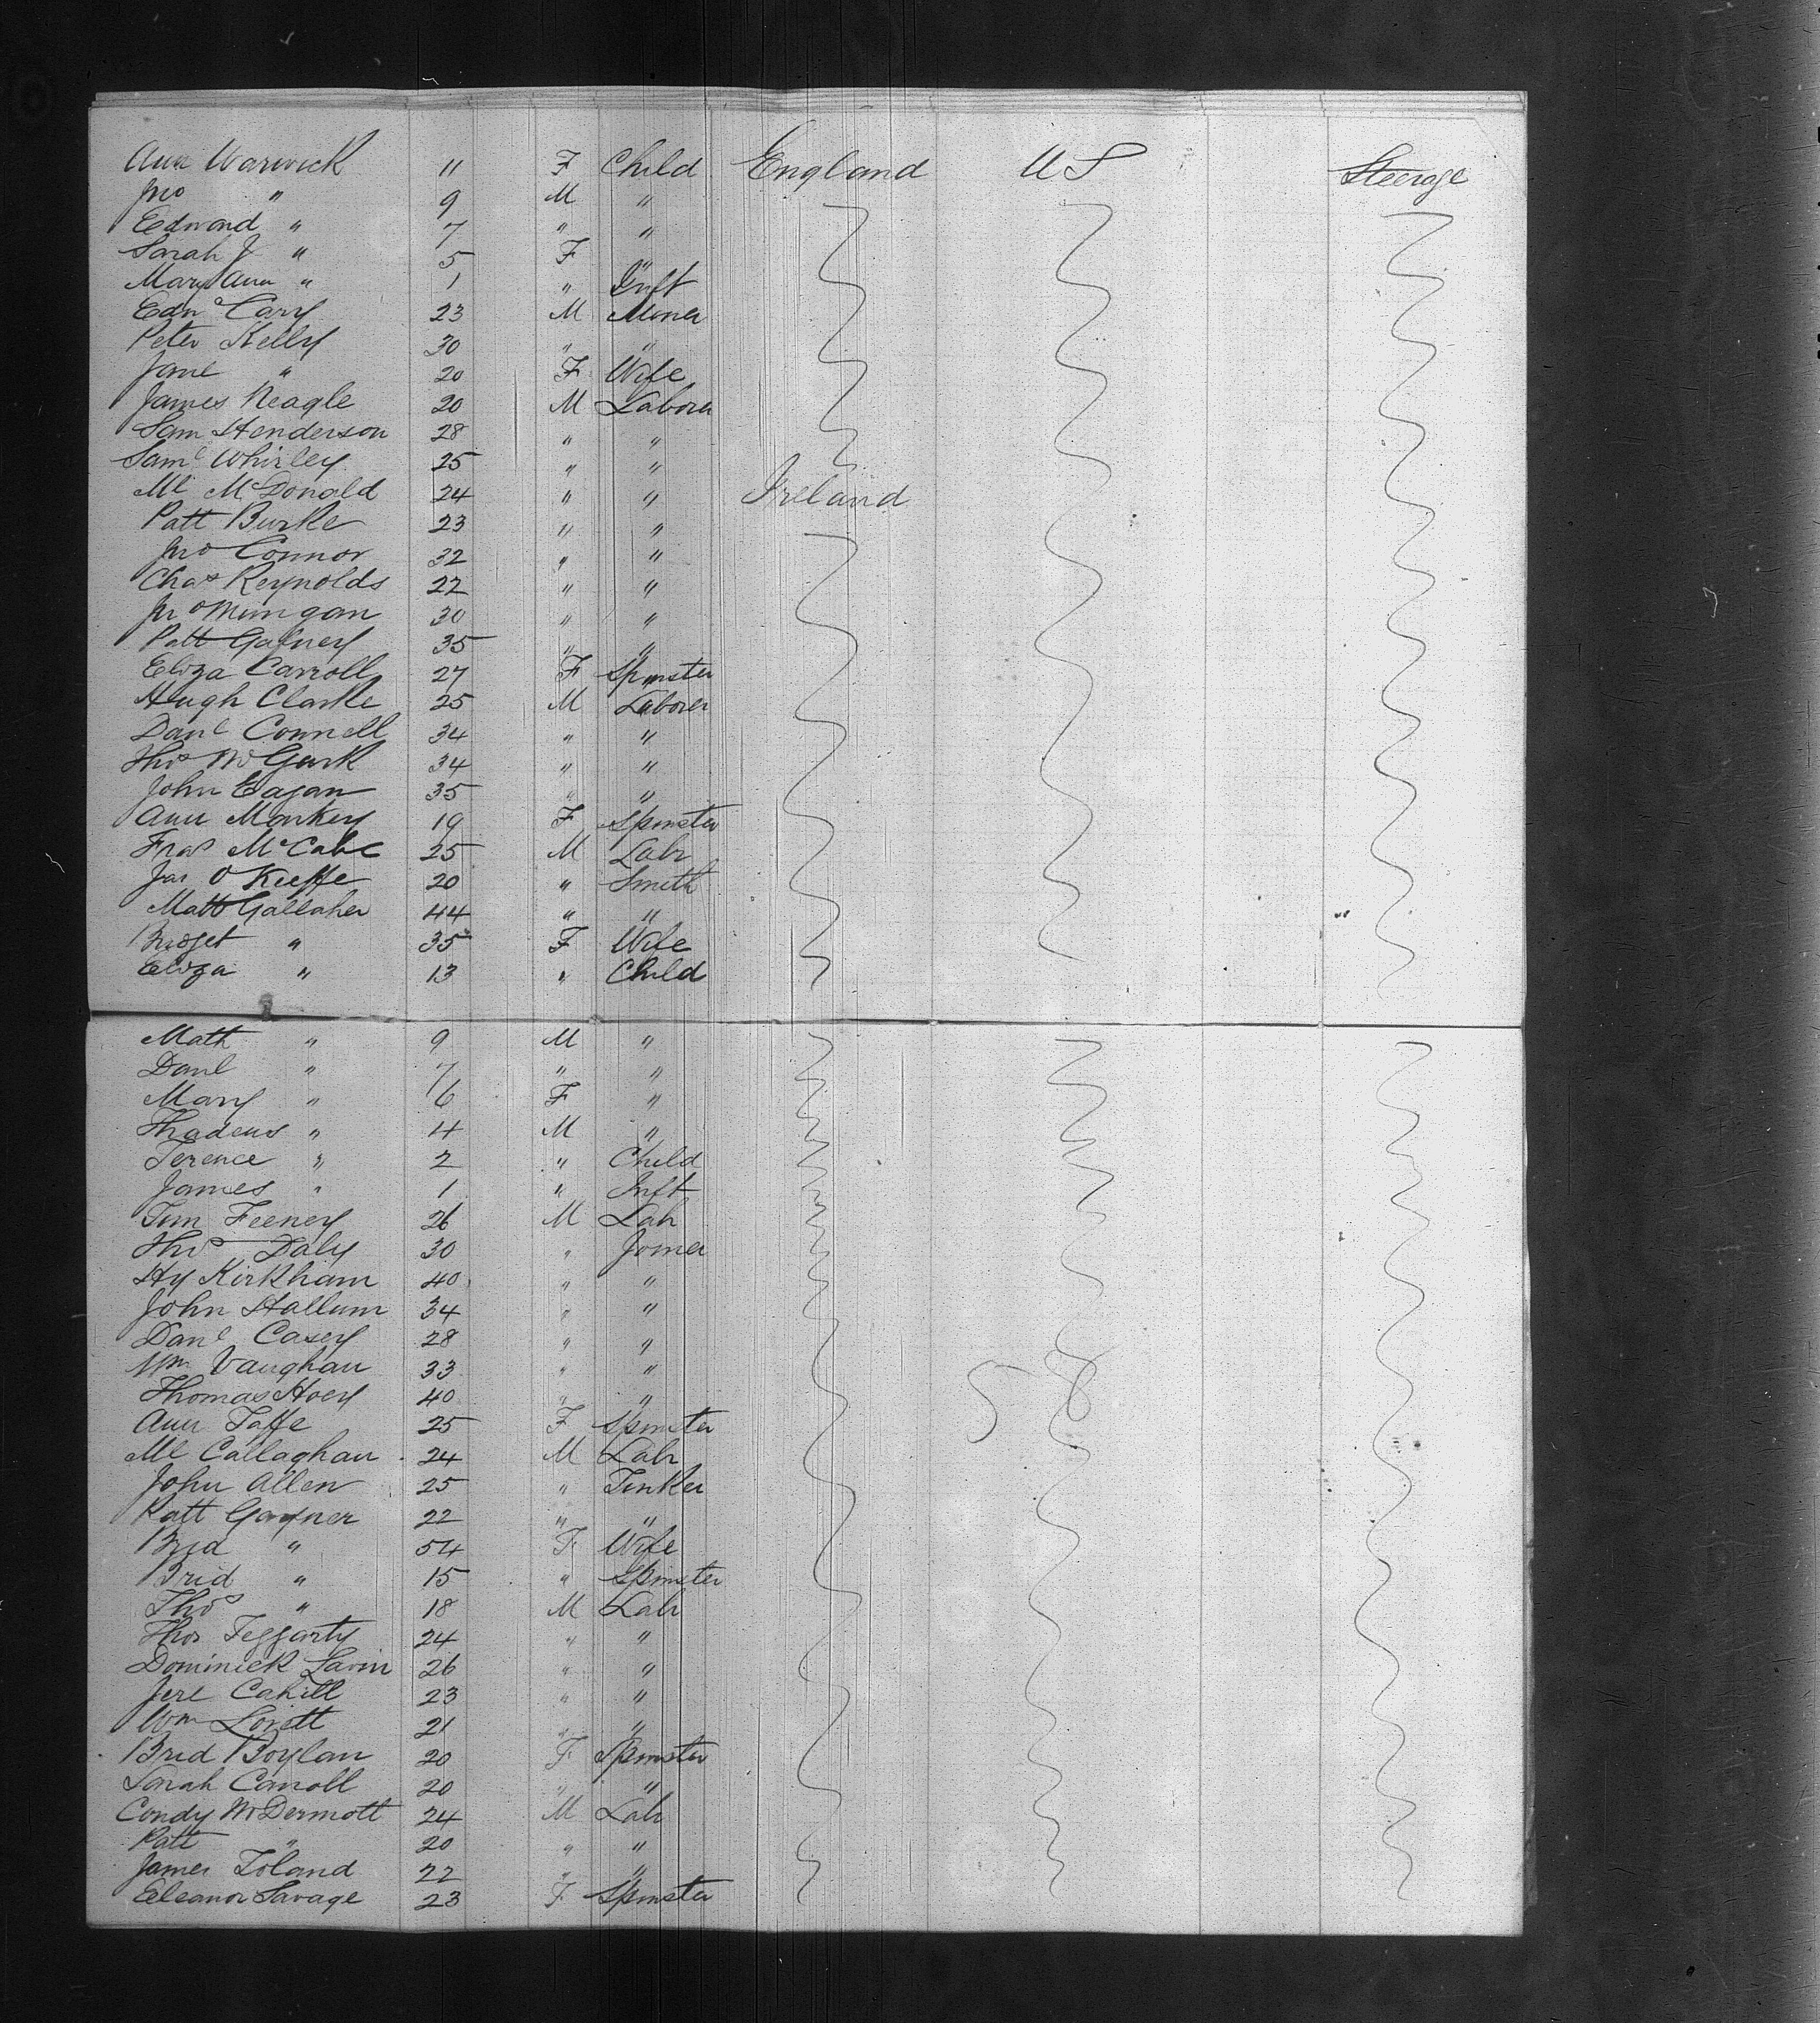 Ann Warwick 11 F Child England US Steerage
Jno " 9 M "
Edward " 7 " "
Sarah J " 5 F "
Mary Ann " 1 " Inft
Edw Cary 23 M Miner
Peter Kelly 30 " "
Jane " 20 F Wife
James Neagle 20 M Laborer
Sam Henderson 28 " "
Saml Whirley 25 " "
Ml McDonald 24 " " Ireland
Patt Burke 23 " "
Jno Connor 32 " "
Chas Reynolds 22 " "
Jno Mungan 30 " "
Patt Gafney 35 " "
Eliza Carroll 27 F Spinster
Hugh Clarke 25 M Laborer
Danl Connell 34 " "
Thos McGurk 34 " "
John Eagan 35 " "
Ann Markey 19 F Spinster
Fras McCabe 25 M Labr
Jas O Keeffe 20 " Smith
Matt Gallaher 44 " "
Bridget " 35 F Wife
Eliza " 13 " Child
Math " 9 M "
Danl " 7 " "
Mary " 6 F "
Thadeus " 4 M "
Terence " 2 " Child
James " 1 " Inft
Tim Feeney 26 M Labr
Thos Daly 30 " Joiner
Hy Kirkham 40 " "
John Hallum 34 " "
Danl Casey 28 " "
Wm Vaughan 33 " " 58
Thomas Hoey 40 " "
Ann Taffe 25 F Spinster
Ml Callaghan 24 M Labr
John Allen 25 " Tinker
Patt Gayner 22 " "
Brid " 54 F Wife
Brid " 15 " Spinster
Thos " 18 M Labr
Thos Feggarty 24 " "
Dominick Lavin 26 " "
Jere Cahill 23 " "
Wm Lovett 21 " "
Brid Boylan 20 F Spinster
Sarah Carroll 20 " "
Condy McDermott 24 M Labr
Patt " 20 " "
James Toland 22 " "
Eleanor Savage 23 F Spinster